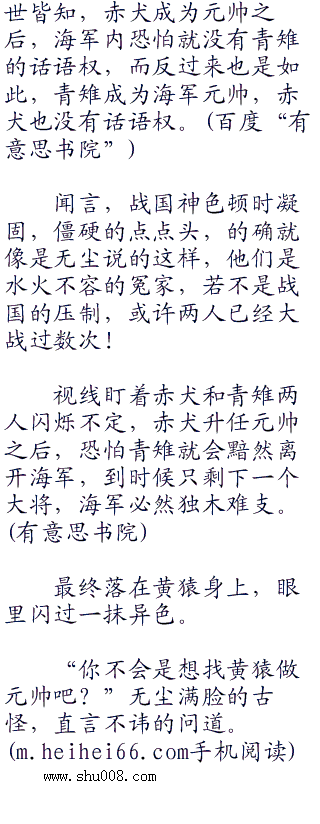 世皆知，赤犬成为元帅之
后，海军内恐怕就没有青雉
的话语权，而反过来也是如
此，青雉成为海军元帅，赤
犬也没有话语权。(百度“有
意思书院”)
闻言，战国神色顿时凝
固，僵硬的点点头，的确就
像是无尘说的这样，他们是
水火不容的冤家，若不是战
国的压制，或许两人已经大
战过数次！
视线盯着赤犬和青雉两
人闪烁不定，赤犬升任元帅
之后，恐怕青雉就会黯然离
开海军，到时候只剩下一个
大将，海军必然独木难支。
(有意思书院)
最终落在黄猿身上，眼
里闪过一抹异色。
“你不会是想找黄猿做
元帅吧？”无尘满脸的古
怪，直言不讳的问道。
(m.heihei66.com手机阅读)
www.shu008.com